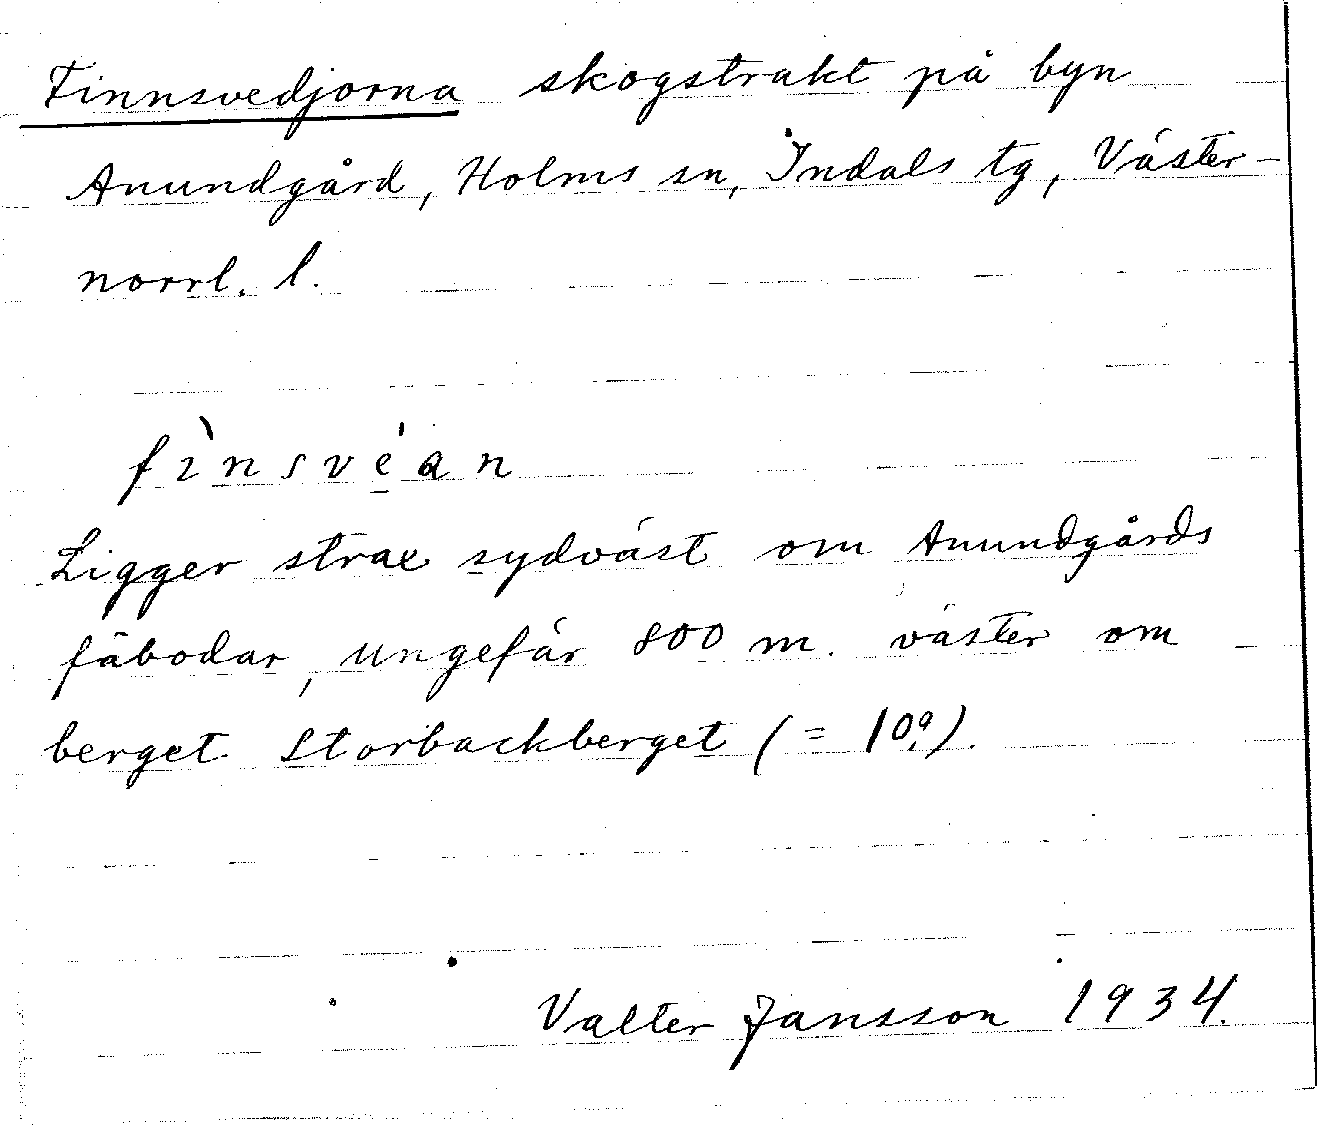 Finnsvedjorna skogstrakt på byn
Anundgård, Holms sn, Indals tg, Väster-
norrl. l.
fìnsvéan
Ligger strax sydväst om Anundgårds
fäbodar, ungefär 800 m. väster om
berget Storbackberget (= 10).
Valter Jansson 1934.